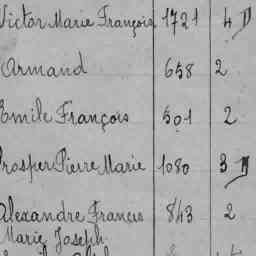 Victor Marie François 1721 4
Armand 658 2
Emile François 501 2
Prosper Pierre Marie 1080 3
Alexandre Francis 843 2
Marie Joseph